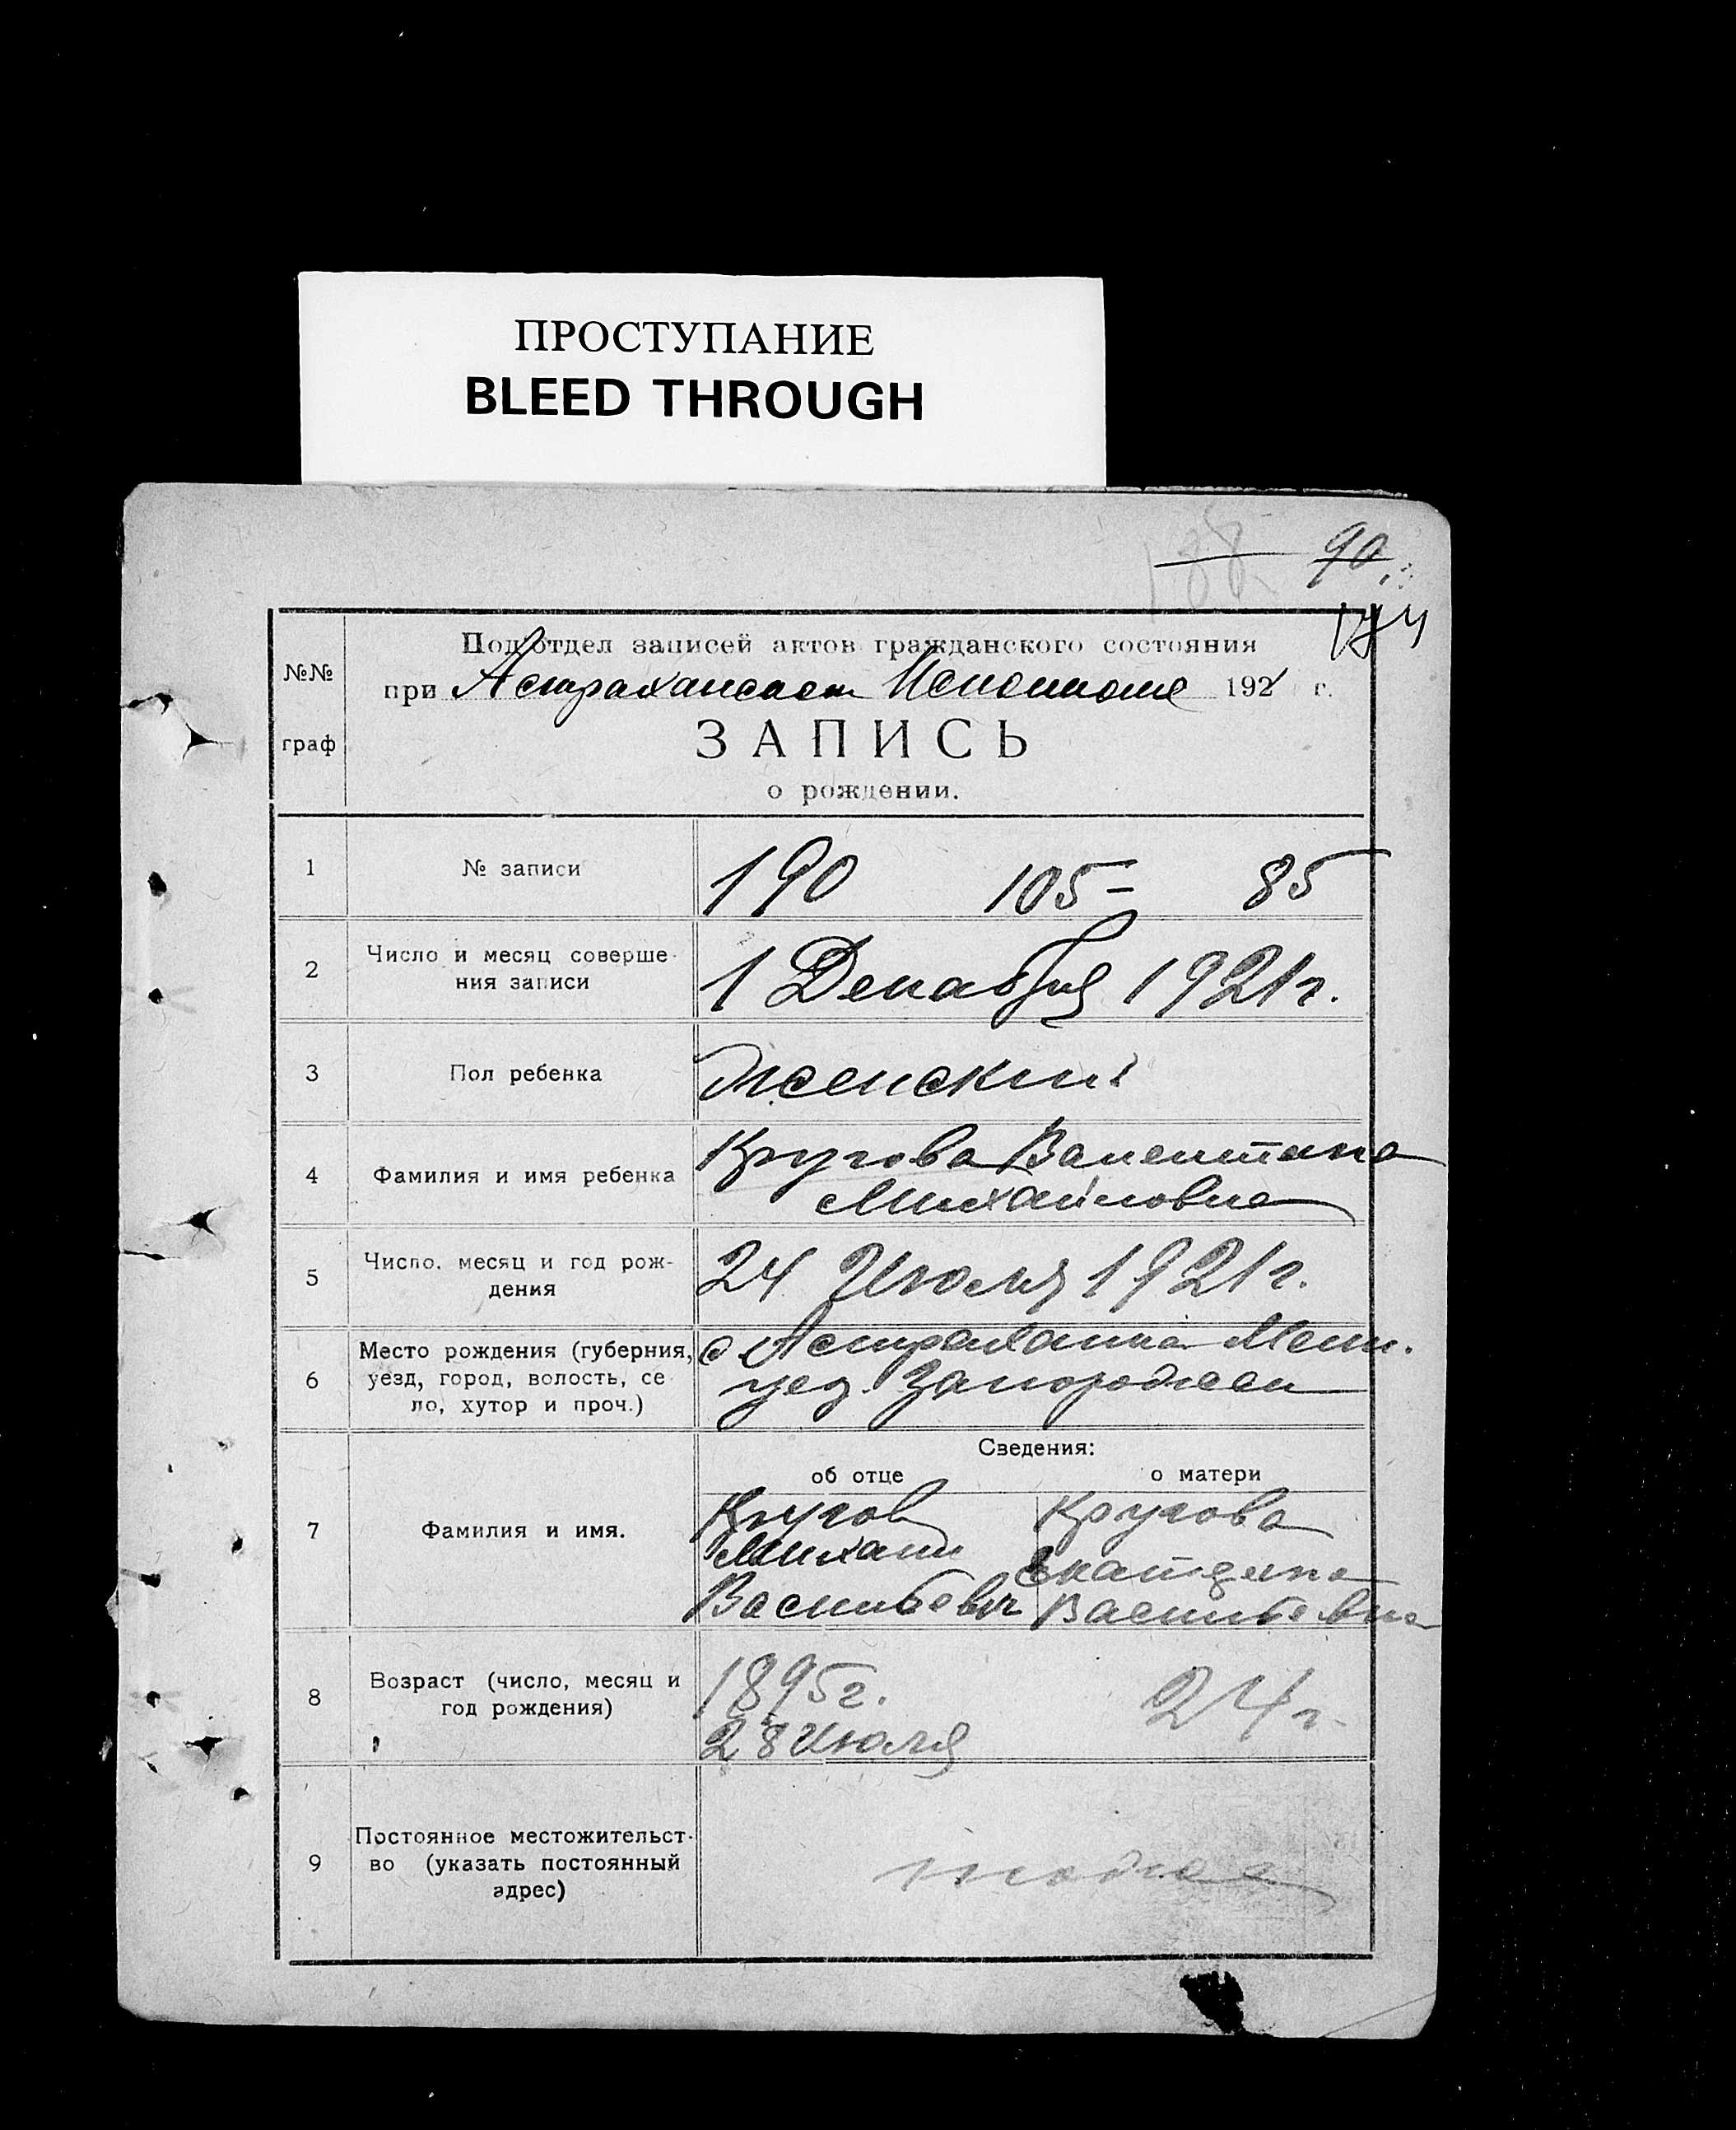 ПРОСТУПАНИЕ
BLEED THROUGH
90
Подотдел записей актов гражданского состояния
при Астраханском Исполкоме 1921 г.
№№
граф
ЗАПИСЬ
о рождении.
1 № записи 190 105- 85
2 Число и месяц соверше-
ния записи
1 Декабря 1921 г.
3 Пол ребенка Женский
4 Фамилия и имя ребенка
Кругова Валентина
Михайловна
5 Число, месяц и год рож-
дения
24 Июля 1921 г.
6 Место рождения (губерния,
уезд, город, волость, се
ло, хутор и проч.)
с Астраханка Мелит.
уез. Запорожской
Сведения:
об отце о матери
7 Фамилия и имя.
Кругов
Михаил
Васильевич
Кругова
Екатерина
Васильевна
8 Возраст (число, месяц и
год рождения)
1895 г.
28 Июля
24 г.
9 Постоянное местожительст-
во (указать постоянный
адрес)